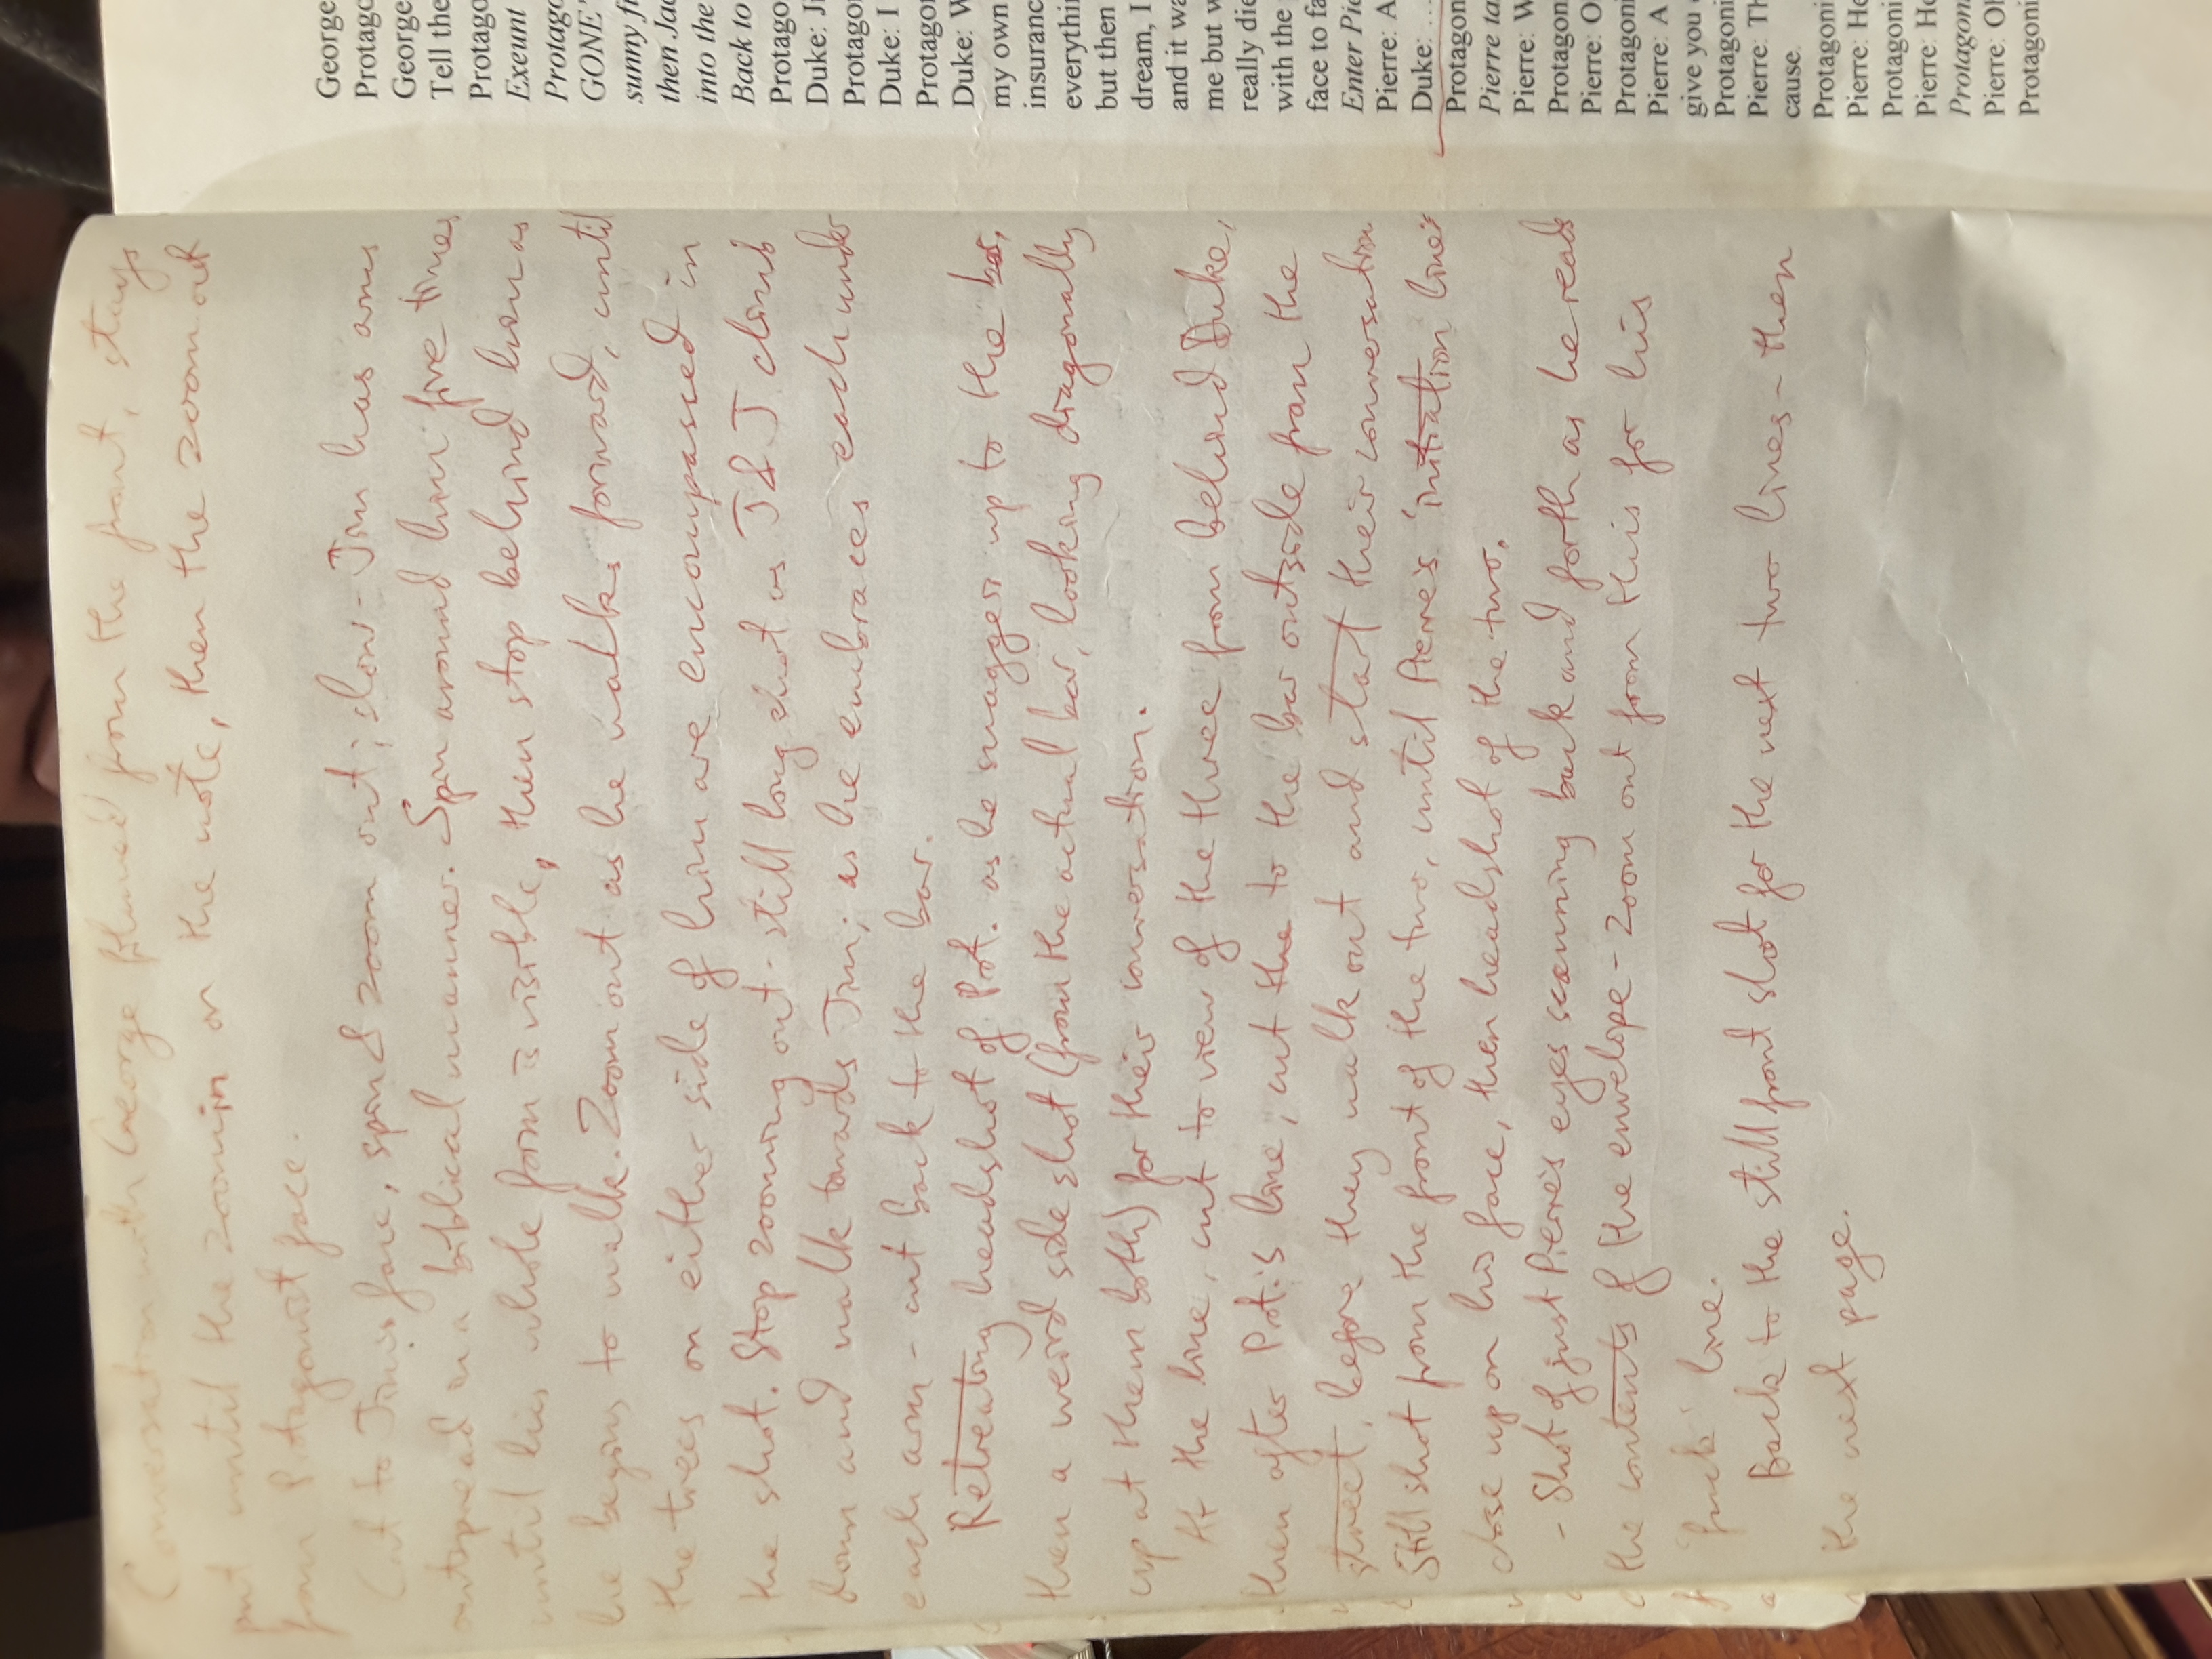 Conversation with George filmed from the front, stays
put until the zoom in on the note, then the zoom out
from Protagonist face.
Cut to Jim's face, spin & zoom out; slow - Jim has arms
outspread in a biblical manner. Spin around him five times
until his whole form is visible, then stop behind him as
he begins to walk. Zoom out as he walks forward, until
the trees on either side of him are encompassed in
the shot. Stop zooming out - still long shot as J & J climb
down and walk towards Jim; as he embraces each under
each arm - cut back to the bar.
Retreating headshot of Prot. as he swaggers up to the bar,
then a weird side shot (from the actual bar, looking diagonally
up at them both) for their conversation.
At the line, cut to view of the three from behind Duke,
then after Prot.'s line, cut the to the bar outside from the
street, before they walk out and start their conversation
Still shot from the front of the two, until Pierre's 'initiation line'
close up on his face, then headshot of the two.
- Shot of just Pierre's eyes scanning back and forth as he reads
the contents of the envelope - zoom out from this for his
'fuck' line.
Back to the still front shot for the next two lines - then
the next page.
George
Protago
George
Tell the
Protago
Exeunt
Protago
GONE'
sunny fi
then Jac
into the
Back to
Protago
Duke: Ji
Protagor
Duke: I
Protagor
Duke: W
my own
insuranc
everythin
but then
dream, I
and it wa
me but w
really die
with the
face to fa
Enter Pie
Pierre: A
Duke: ...
Protagon
Pierre ta
Pierre: W
Protagon
Pierre: O
Protagoni
Pierre: A
give you
Protagoni
Pierre: Th
cause.
Protagoni
Pierre: He
Protagoni
Pierre: He
Protagon
Pierre: Oh
Protagoni